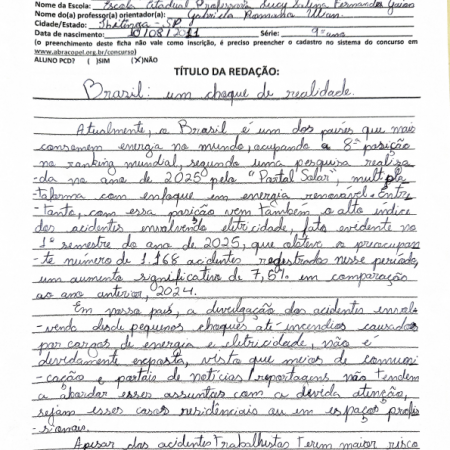 Nome da Escola: Escola Estadual Professora Lucy Fernandes
Nome do(a) professor(a) orientador(a): Gabriela
Cidade/Estado: Ibitinga - SP
Data de nascimento: 10/08/2011 Série: 9º ano
(o preenchimento deste ficha não vale como inscrição, é preciso preencher o cadastro no sistema do concurso em
www.abracopel.org.br/concurso)
ALUNO PCD? ( )SIM (X)NÃO
TÍTULO DA REDAÇÃO:
Brasil: um choque de realidade.
Atualmente, o Brasil é um dos países que mais
consomem energia no mundo, ocupando a 8ª posição
no ranking mundial, segundo uma pesquisa realiza
-da no ano de 2025 pelo "Portal Solar",
-taforma com enfoque em energia renovável. Entre
-tanto, com essa posição vem também o alto índice
dos acidentes envolvendo eletricidade, fato evidente no
1º semestre do ano de 2025, que obteve o preocupan
-te número de 1.168 acidentes registrados nesse período,
um aumento significativo de 7,6% em comparação
ao ano anterior, 2024.
Em nosso país, a divulgação dos acidentes envol
-vendo desde pequenos choques até incêndios causados
por cargas de energia e eletricidade, não é
devidamente exposta, visto que meios de comuni
-cação e portais de notícias/reportagens não tendem
a abordar esses assuntos com a devida atenção,
sejam esses casos residênciais ou em espaços profis
-sionais.
Apesar dos acidentes trabalhistas terem maior risco